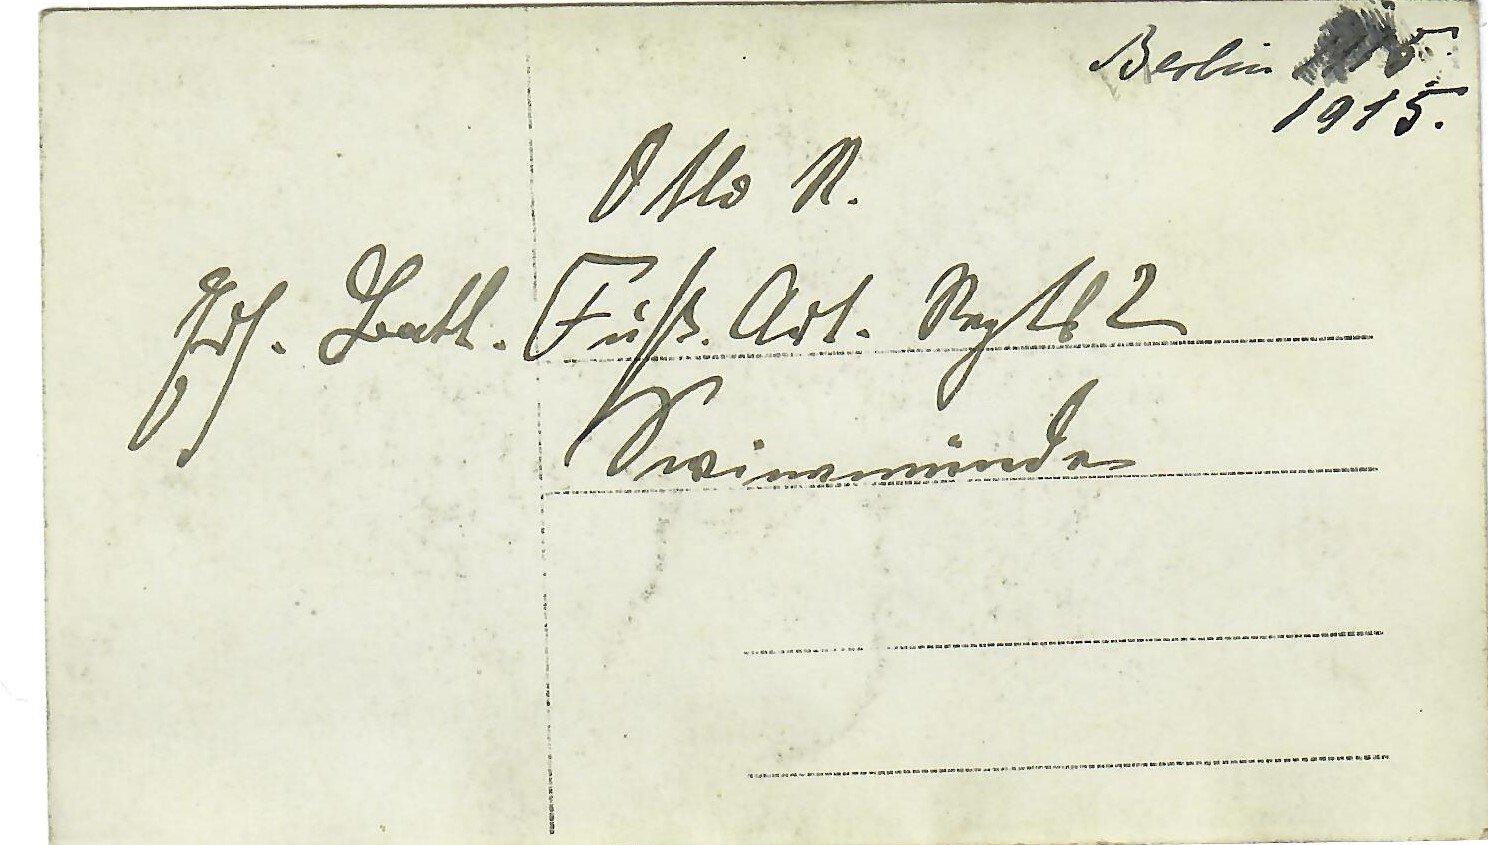 Berlin
1915.
Otto R.
Ers. Batl. Fuß. Art. Regts 2
Swinemünde